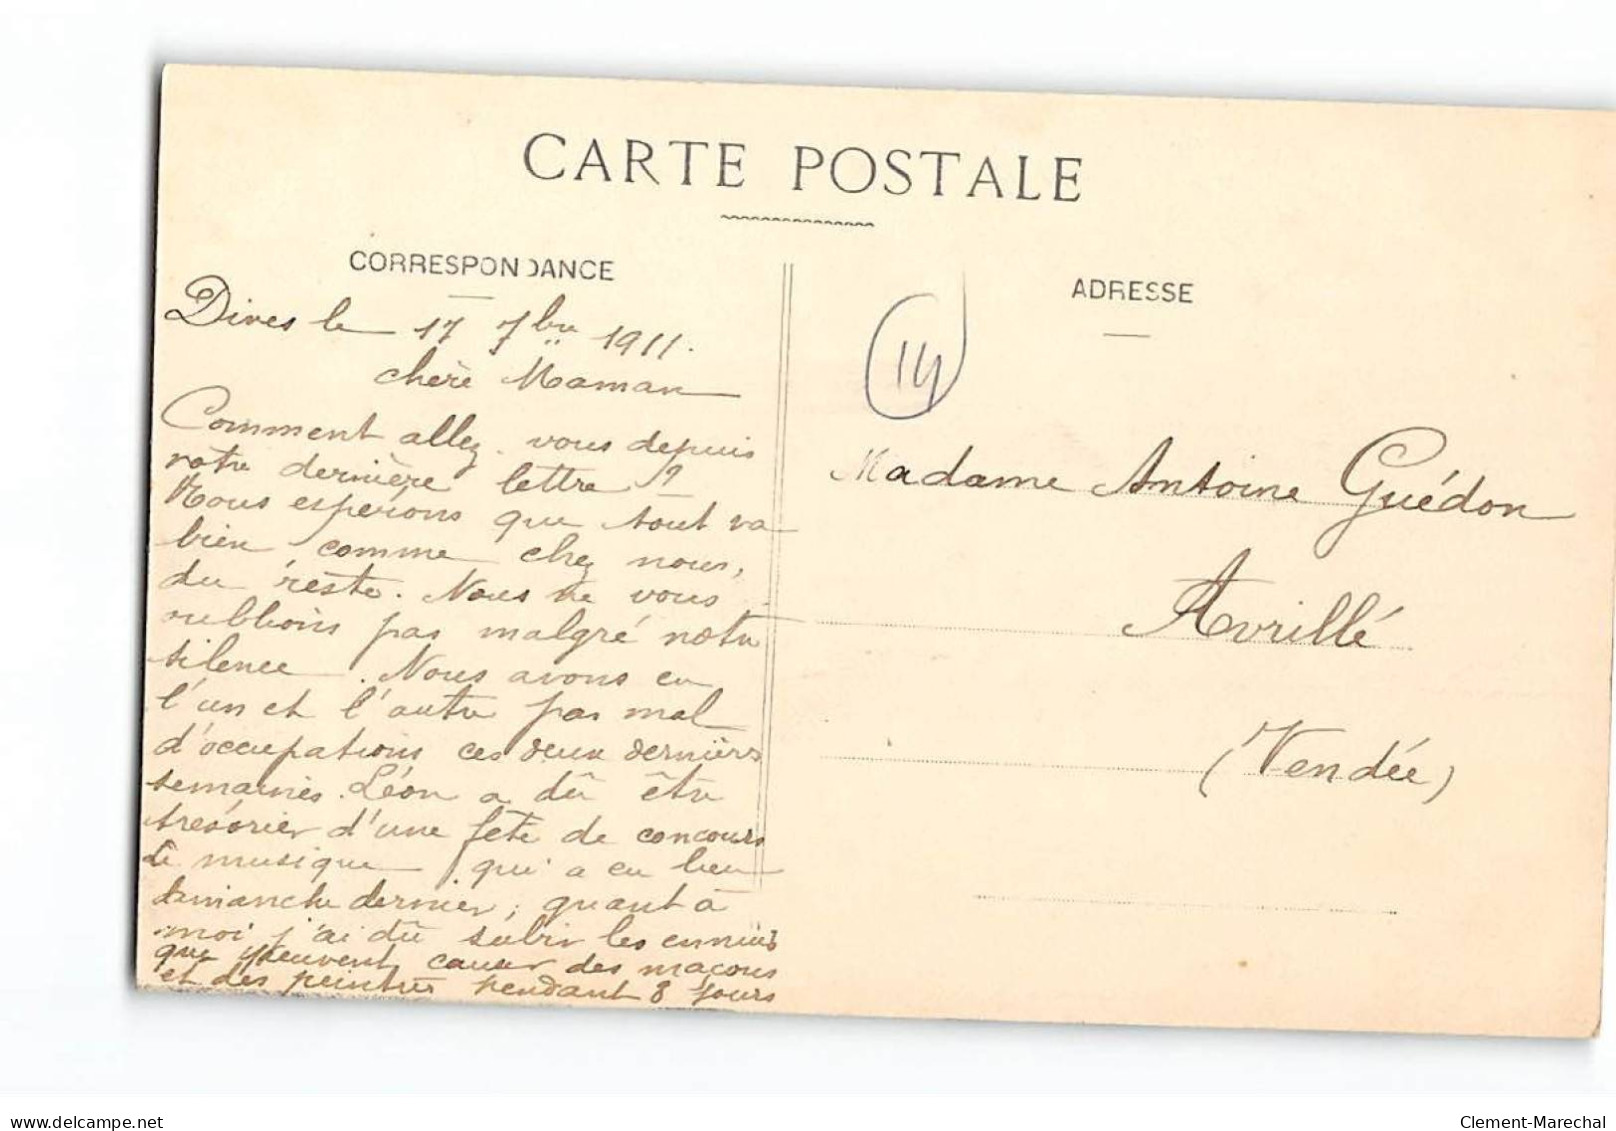 CARTE POSTALE
CORRESPONDANCE
Dives le 17 7bre 1911.
chère Maman
Comment allez-vous depuis
votre dernière lettre ?
Nous espérons que tout va
bien comme chez nous,
du reste. Nous ne vous
oublions pas malgré notre
silence. Nous avons eu
l'un et l'autre pas mal
d'occupations ces deux dernières
semaines. Léon a dû être
trésorier d'une fête de concours
de musique qui a eu lieu
dimanche dernier, quant à
moi j'ai dû subir les ennuis
que peuvent causer des maçons
et des peintres pendant 8 jours
ADRESSE
14
Madame Antoine Guédon
Avrillé
(Vendée)
www.delcampe.net
Clement-Marechal